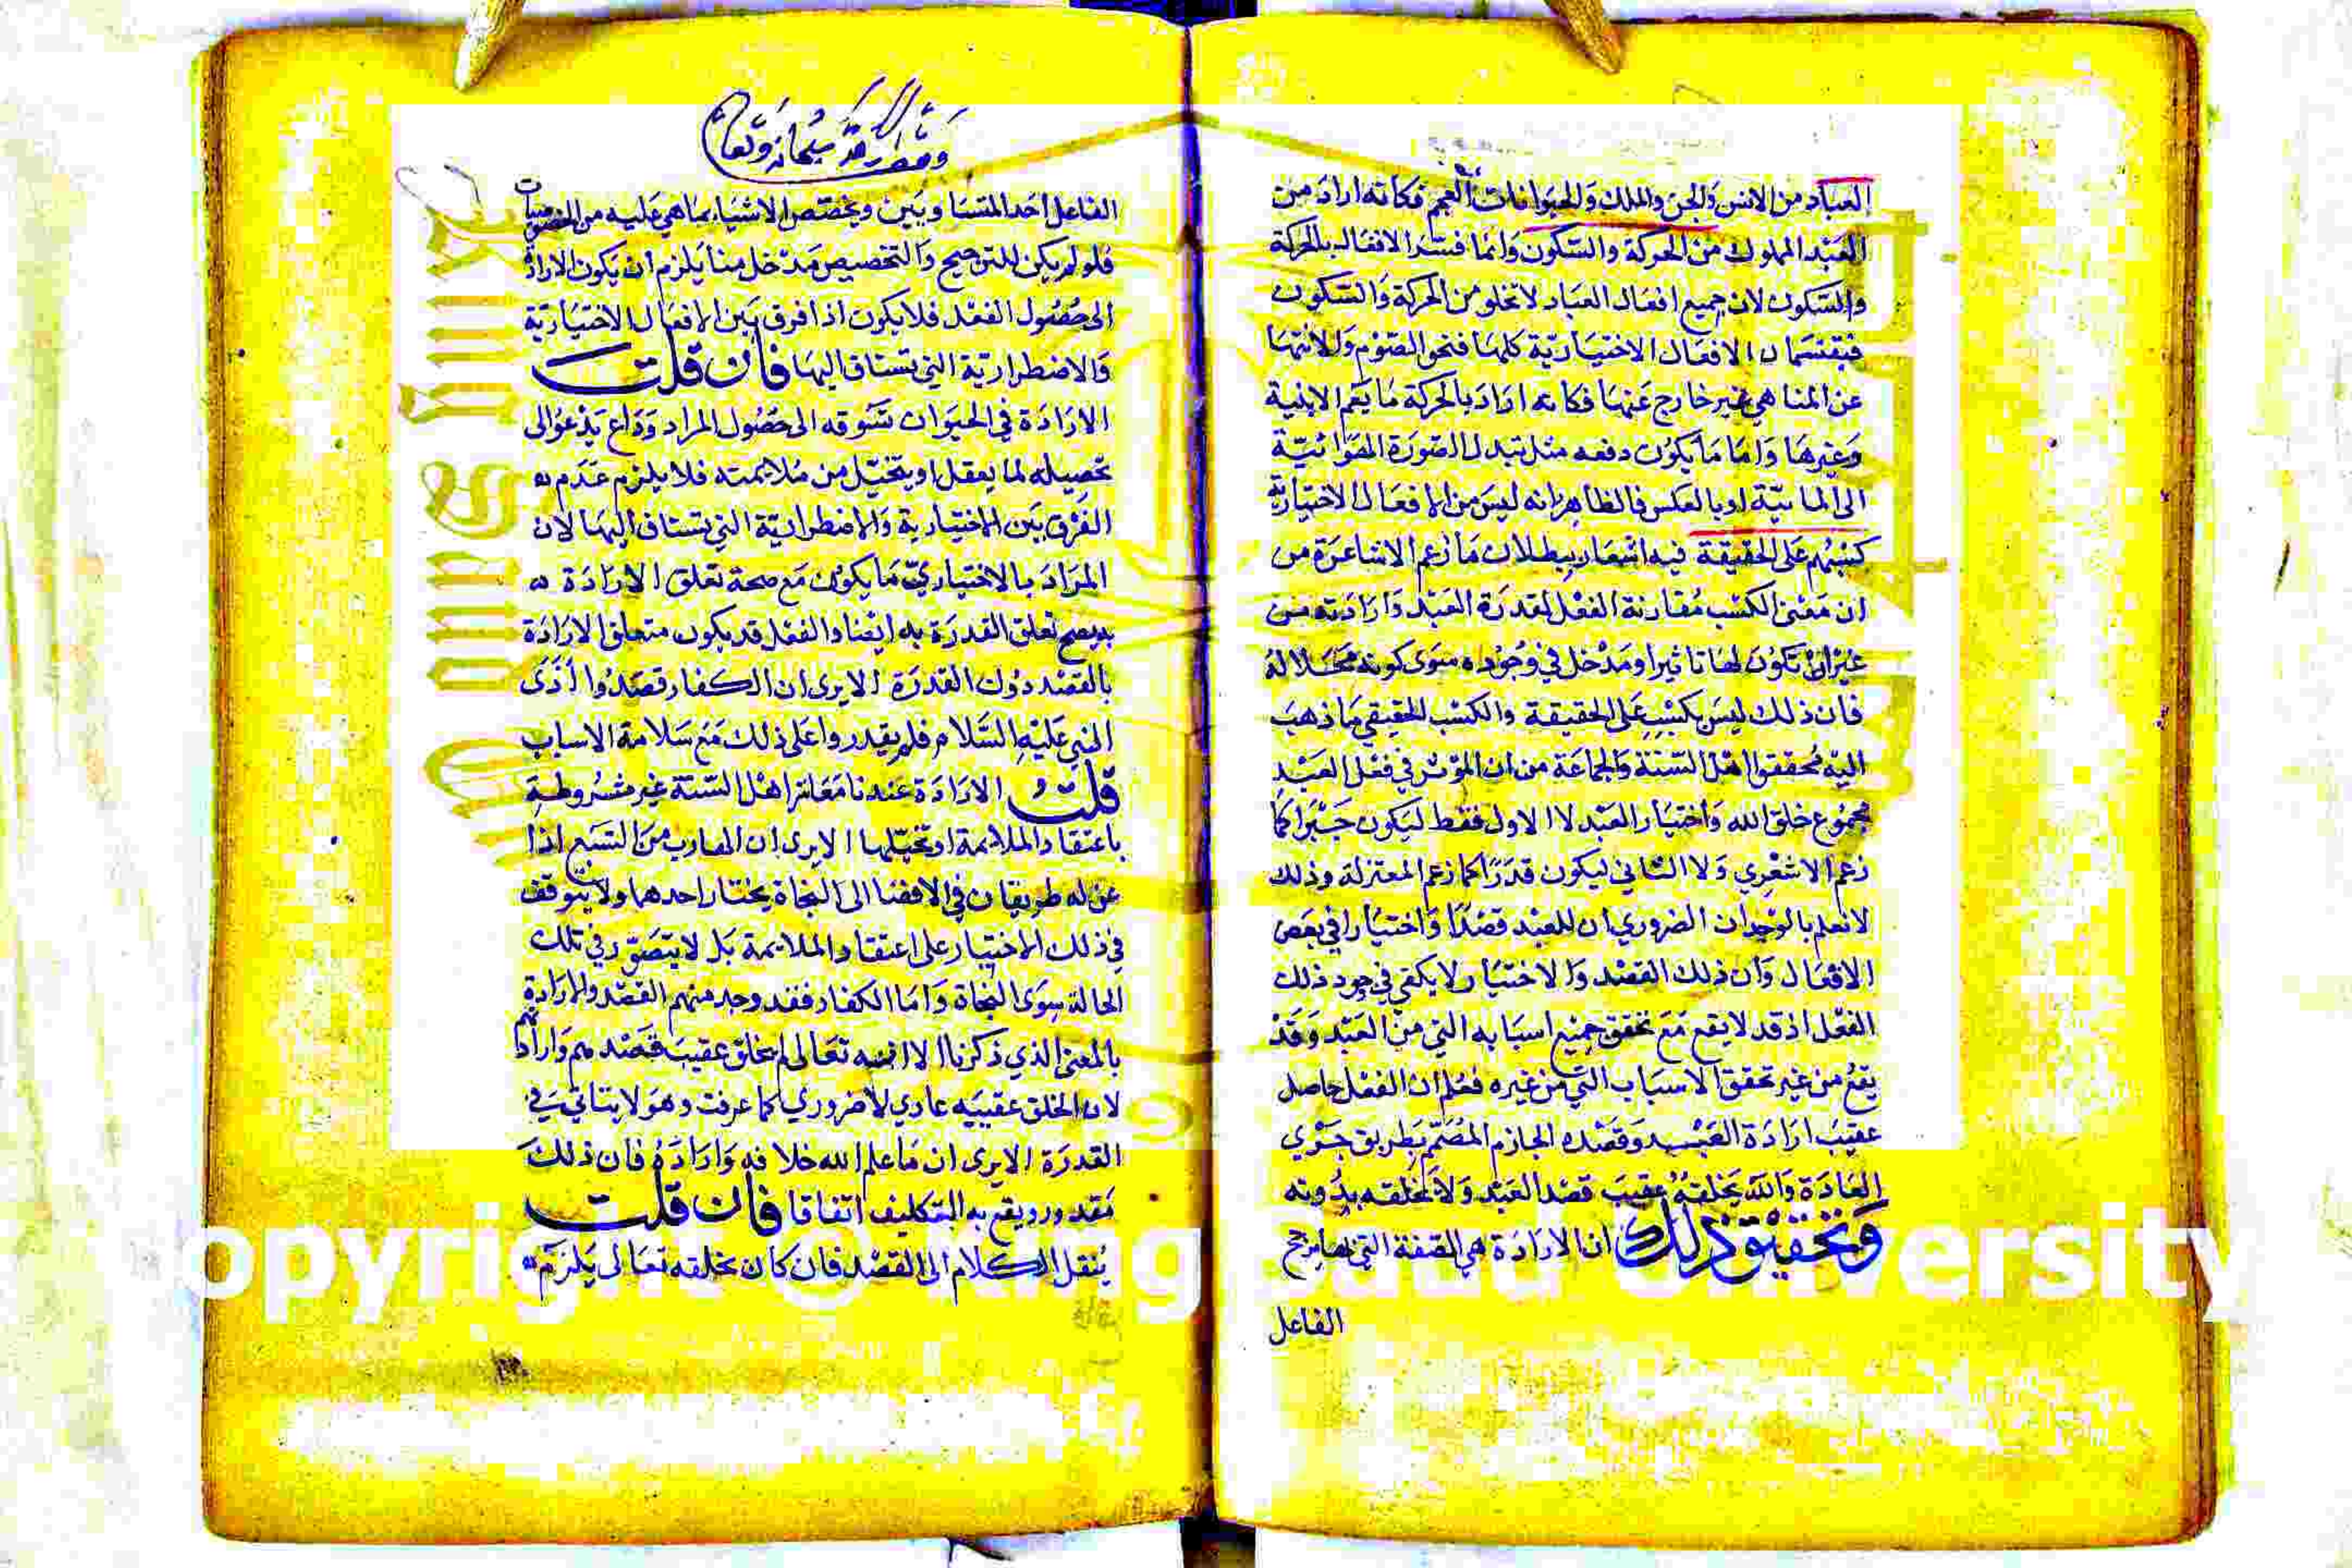 العباد من الانس والجن والملك والحيوانات العجم فكانه اراد من
العبد المملوك من الحركة والسكون وانما فسر الافعال بالحركة
والسكون لان جميع افعال العباد لا تخلو من الحركة والسكون
فيقسمان الافعال الاختيارية كلها فنحو الصوم والانتهاء
عن المناهي غير خارج عنها فكانه اراد بالحركة ما يعم الاينية
وغيرها واما ما يكون دفعه مثل تبدل الصورة الهوائية
الى المائية او بالعكس فالظاهر انه ليس من الافعال الاختيارية
كسبهم على الحقيقة فيه اشعار ببطلان ما زعم الاشاعرة من
ان معنى الكسب مقارنة الفعل لقدرة العبد وارادته من
غير ان تكون لها تاثيرا ومدخل في وجوده سوى كونه محلا له
فان ذلك ليس بكسب على الحقيقة والكسب الحقيقي ما ذهب
اليه محققوا اهل السنة والجماعة من ان المؤثر في فعل العبد
مجموع خلق الله واختيار العبد لا الاول فقط ليكون جبرا كما
زعم الاشعري ولا الثاني ليكون قدرا كما زعم المعتزلة وذلك
لانعلم بالوجدان الضروري ان للعبد قصدا واختيارا في بعض
الافعال وان ذلك القصد والاختيار لا يكفي في وجود ذلك
الفعل اذ قد لا يقع مع تحقق جميع اسبابه التي من العبد وقد
يقع من غير تحقق الاسباب التي من غيره فعلم ان الفعل حاصل
عقيب ارادة العبد وقصده الجازم المصمم بطريق جري
العادة والله يخلقه عقيب قصد العبد ولا يخلقه بدونه
وتحقيق ذلك ان الارادة هي الصفة التي بها يرجح
الفاعل
الفاعل احد المتساويين ويخصص الاشياء بما هي عليه من الخصوصيات
فلو لم يكن للترجيح والتخصيص مدخل منا يلزم ان يكون الارادة
الى حصول الفعل فلا يكون اذا فرق بين الافعال الاختيارية
والاضطرارية التي تشتاق اليها فان قلت
الارادة في الحيوان تشوقه الى حصول المراد وداع يدعو الى
تحصيله لما يعقل او يتخيل من ملايمته فلا يلزم عدم
الفرق بين الاختيارية والاضطرارية التي تشتاق اليها لان
المراد بالاختياري ما يكون مع صحة تعلق الارادة
به يصح تعلق القدرة به ايضا والفعل قد يكون متعلق الارادة
بالقصد دون القدرة الا يرى ان الكفار قصدوا اذى
النبي عليه السلام فلم يقدروا على ذلك مع سلامة الاسباب
قلت الارادة عندنا معاشر اهل السنة غير مشروطة
باعتقاد الملايمة او تخيلها الا يرى ان الهارب من السبع اذا
عن له طريقان في الافضا الى النجاة يختار احدهما ولا يتوقف
في ذلك الاختيار على اعتقاد الملايمة بل لا يتصور في تلك
الحالة سوى النجاة واما الكفار فقد وجد منهم القصد والارادة
بالمعنى الذي ذكرنا الا انه تعالى لم يخلق عقيب قصدهم وارادتهم
لان الخلق عقيبه عادي لا ضروري كما عرفت وهو لا ينافي في
القدرة الا يرى ان ما علم الله خلافه واراده فان ذلك
مقدور ويقع به التكليف اتفاقا فان قلت
ينقل الكلام الى القصد فان كان بخلقه تعالى يلزم
Copyright © King Saud University